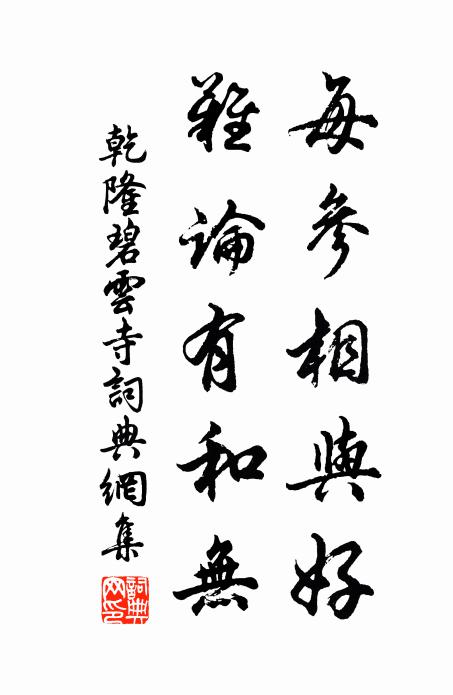 每參相與好
難論有和無
乾隆碧雲寺詞典網集
詞典